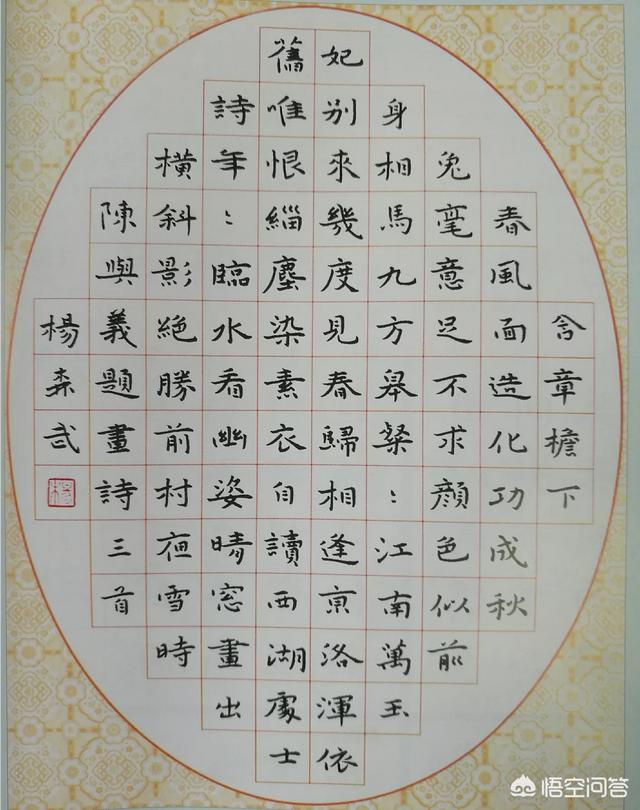 含章檐下
春風面造化功成秋
兔毫意足不求顏色似前
身相馬九方皋粲〻江南萬玉
妃别來幾度見春歸相逢京洛渾依
舊唯恨緇塵染素衣自讀西湖處士
詩年〻臨水看幽姿晴窓畫出
橫斜影絕勝前村夜雪時
陳與義題畫詩三首
楊森武
悟空问答